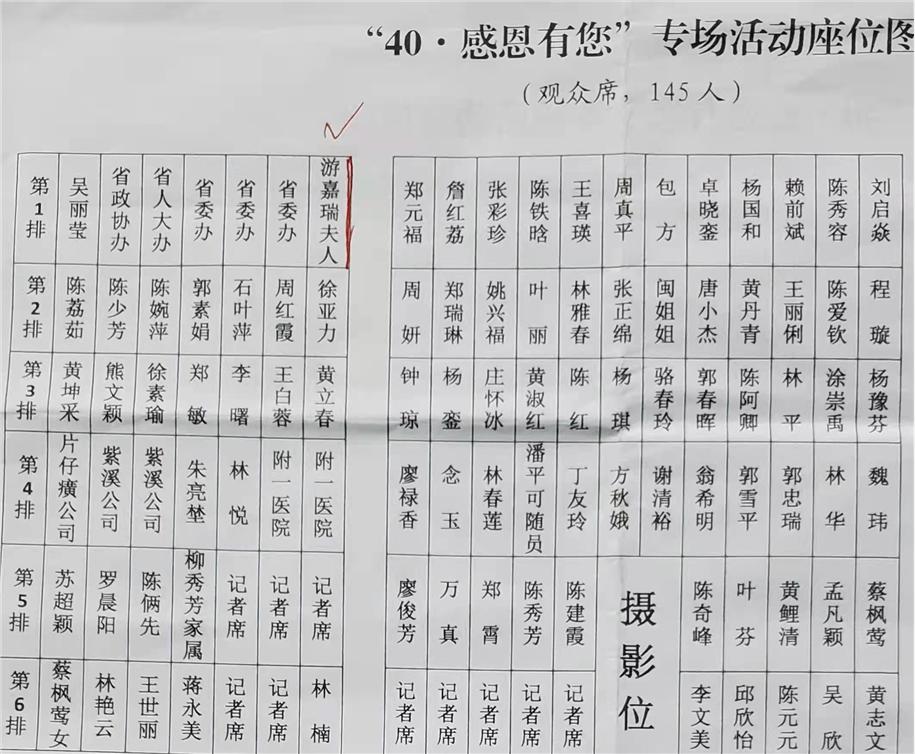 “40·感恩有您”专场活动座位图
（观众席，145人）
第1排 吴丽莹 省政协办 省人大办 省委办 省委办 省委办 游嘉瑞夫人 郑元福 詹红荔 张彩珍 陈铁晗 王喜瑛 周真平 包方 卓晓銮 杨国和 赖前斌 陈秀容 刘启焱
第2排 陈荔茹 陈少芳 陈婉萍 郭素娟 石叶萍 周红霞 徐亚力 周妍 郑瑞琳 姚兴福 叶丽 林雅春 张正绵 闽姐姐 唐小杰 黄丹青 王丽俐 陈爱钦 程璇
第3排 黄坤采 熊文颖 徐素瑜 郑敏 李曙 王白蓉 黄立春 钟琼 杨銮 庄怀冰 黄淑红 陈红 杨琪 骆春玲 郭春晖 陈阿卿 林平 涂崇禹 杨豫芬
第4排 片仔癀公司 紫溪公司 紫溪公司 朱亮埜 林悦 附一医院 附一医院 廖禄香 念玉 林春莲 潘平可随员 丁友玲 方秋娥 谢清裕 翁希明 郭雪平 郭忠瑞 林华 魏玮
第5排 苏超颖 罗晨阳 陈俩先 柳秀芳家属 记者席 记者席 记者席 廖俊芳 万真 郑霄 陈秀芳 陈建霞 摄影位 陈奇峰 叶芬 黄鲤清 孟凡颖 蔡枫莺
第6排 蔡枫莺女 林艳云 王世丽 蒋永美 记者席 记者席 林楠 记者席 记者席 记者席 记者席 记者席 李文美 邱欣怡 陈元元 吴欣 黄志文